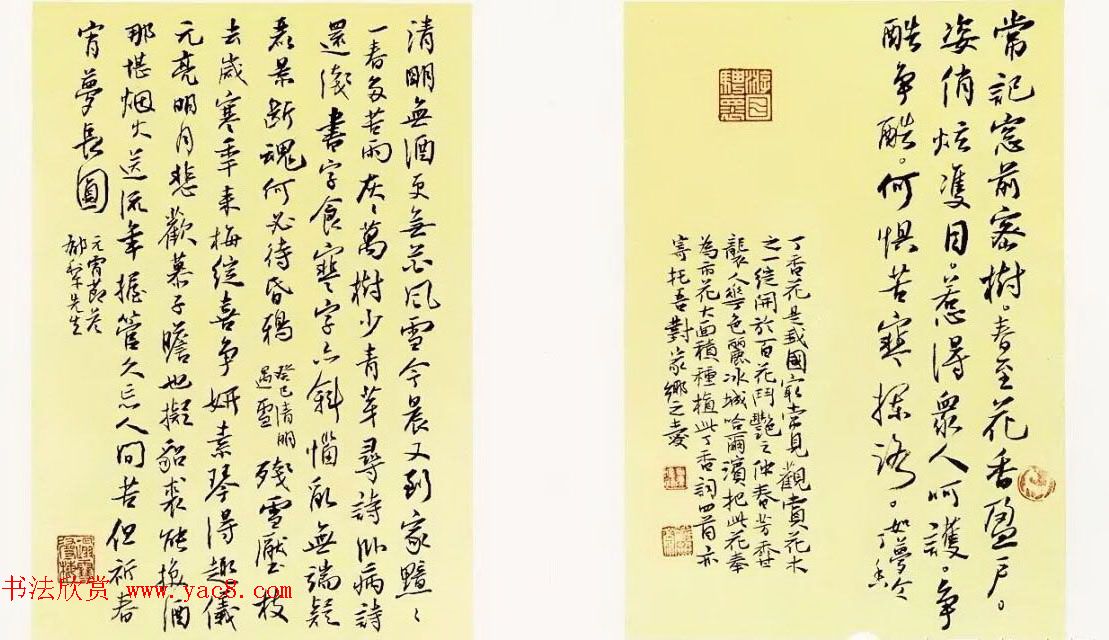 常記窓前密樹。春至花香盈戶。
姿俏炫雙目。惹得眾人呵護。争
酷争酷。何惧苦寒。如夢令
丁香
游目騁懷
丁香花是我國最常見觀賞花木
之一綻開於百花鬥艷之仲春芳香
襲人色麗冰城哈爾濱把此花奉
為市花大面積種植此丁香詞四首亦
寄托吾對家鄉之愛
清明無酒更無花風雪今晨又到家黯〻
一春多苦雨灰〻萬樹少青芽尋詩臥病詩
還淺書字貪寒字亦斜惱亂無端疑
暮景斷魂何必待昏鴉
癸巳清明
遇雪
殘雪壓枝
去歲寒季来梅綻喜争妍素琴得趣儀
元亮明月悲歡慕子瞻也擬貂裘能換酒
那堪烟火送流年握管久忘人間苦但祈春
宵夢長圓
元宵節答
先生
书法欣赏 www.yac8.com